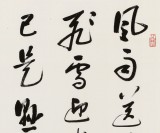 風雨送
飛雪迎
已是懸